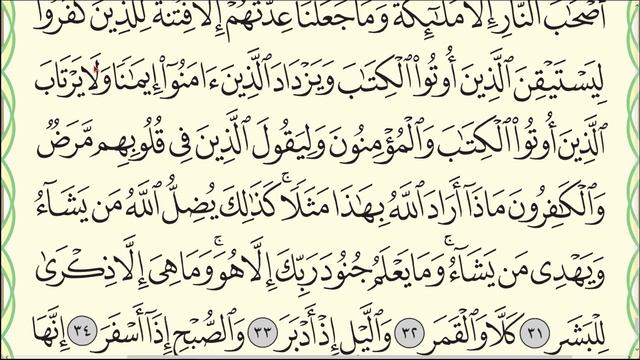 أَصْحَٰبَ ٱلنَّارِ إِلَّا مَلَٰٓئِكَةً وَمَا جَعَلْنَا عِدَّتَهُمْ إِلَّا فِتْنَةً لِّلَّذِينَ كَفَرُوا۟
لِيَسْتَيْقِنَ ٱلَّذِينَ أُوتُوا۟ ٱلْكِتَٰبَ وَيَزْدَادَ ٱلَّذِينَ ءَامَنُوٓا۟ إِيمَٰنًا وَلَا يَرْتَابَ
ٱلَّذِينَ أُوتُوا۟ ٱلْكِتَٰبَ وَٱلْمُؤْمِنُونَ وَلِيَقُولَ ٱلَّذِينَ فِى قُلُوبِهِم مَّرَضٌ
وَٱلْكَٰفِرُونَ مَاذَآ أَرَادَ ٱللَّهُ بِهَٰذَا مَثَلًا ۚ كَذَٰلِكَ يُضِلُّ ٱللَّهُ مَن يَشَآءُ
وَيَهْدِى مَن يَشَآءُ ۚ وَمَا يَعْلَمُ جُنُودَ رَبِّكَ إِلَّا هُوَ ۚ وَمَا هِىَ إِلَّا ذِكْرَىٰ
لِلْبَشَرِ ٣١ كَلَّا وَٱلْقَمَرِ ٣٢ وَٱلَّيْلِ إِذْ أَدْبَرَ ٣٣ وَٱلصُّبْحِ إِذَآ أَسْفَرَ ٣٤ إِنَّهَا